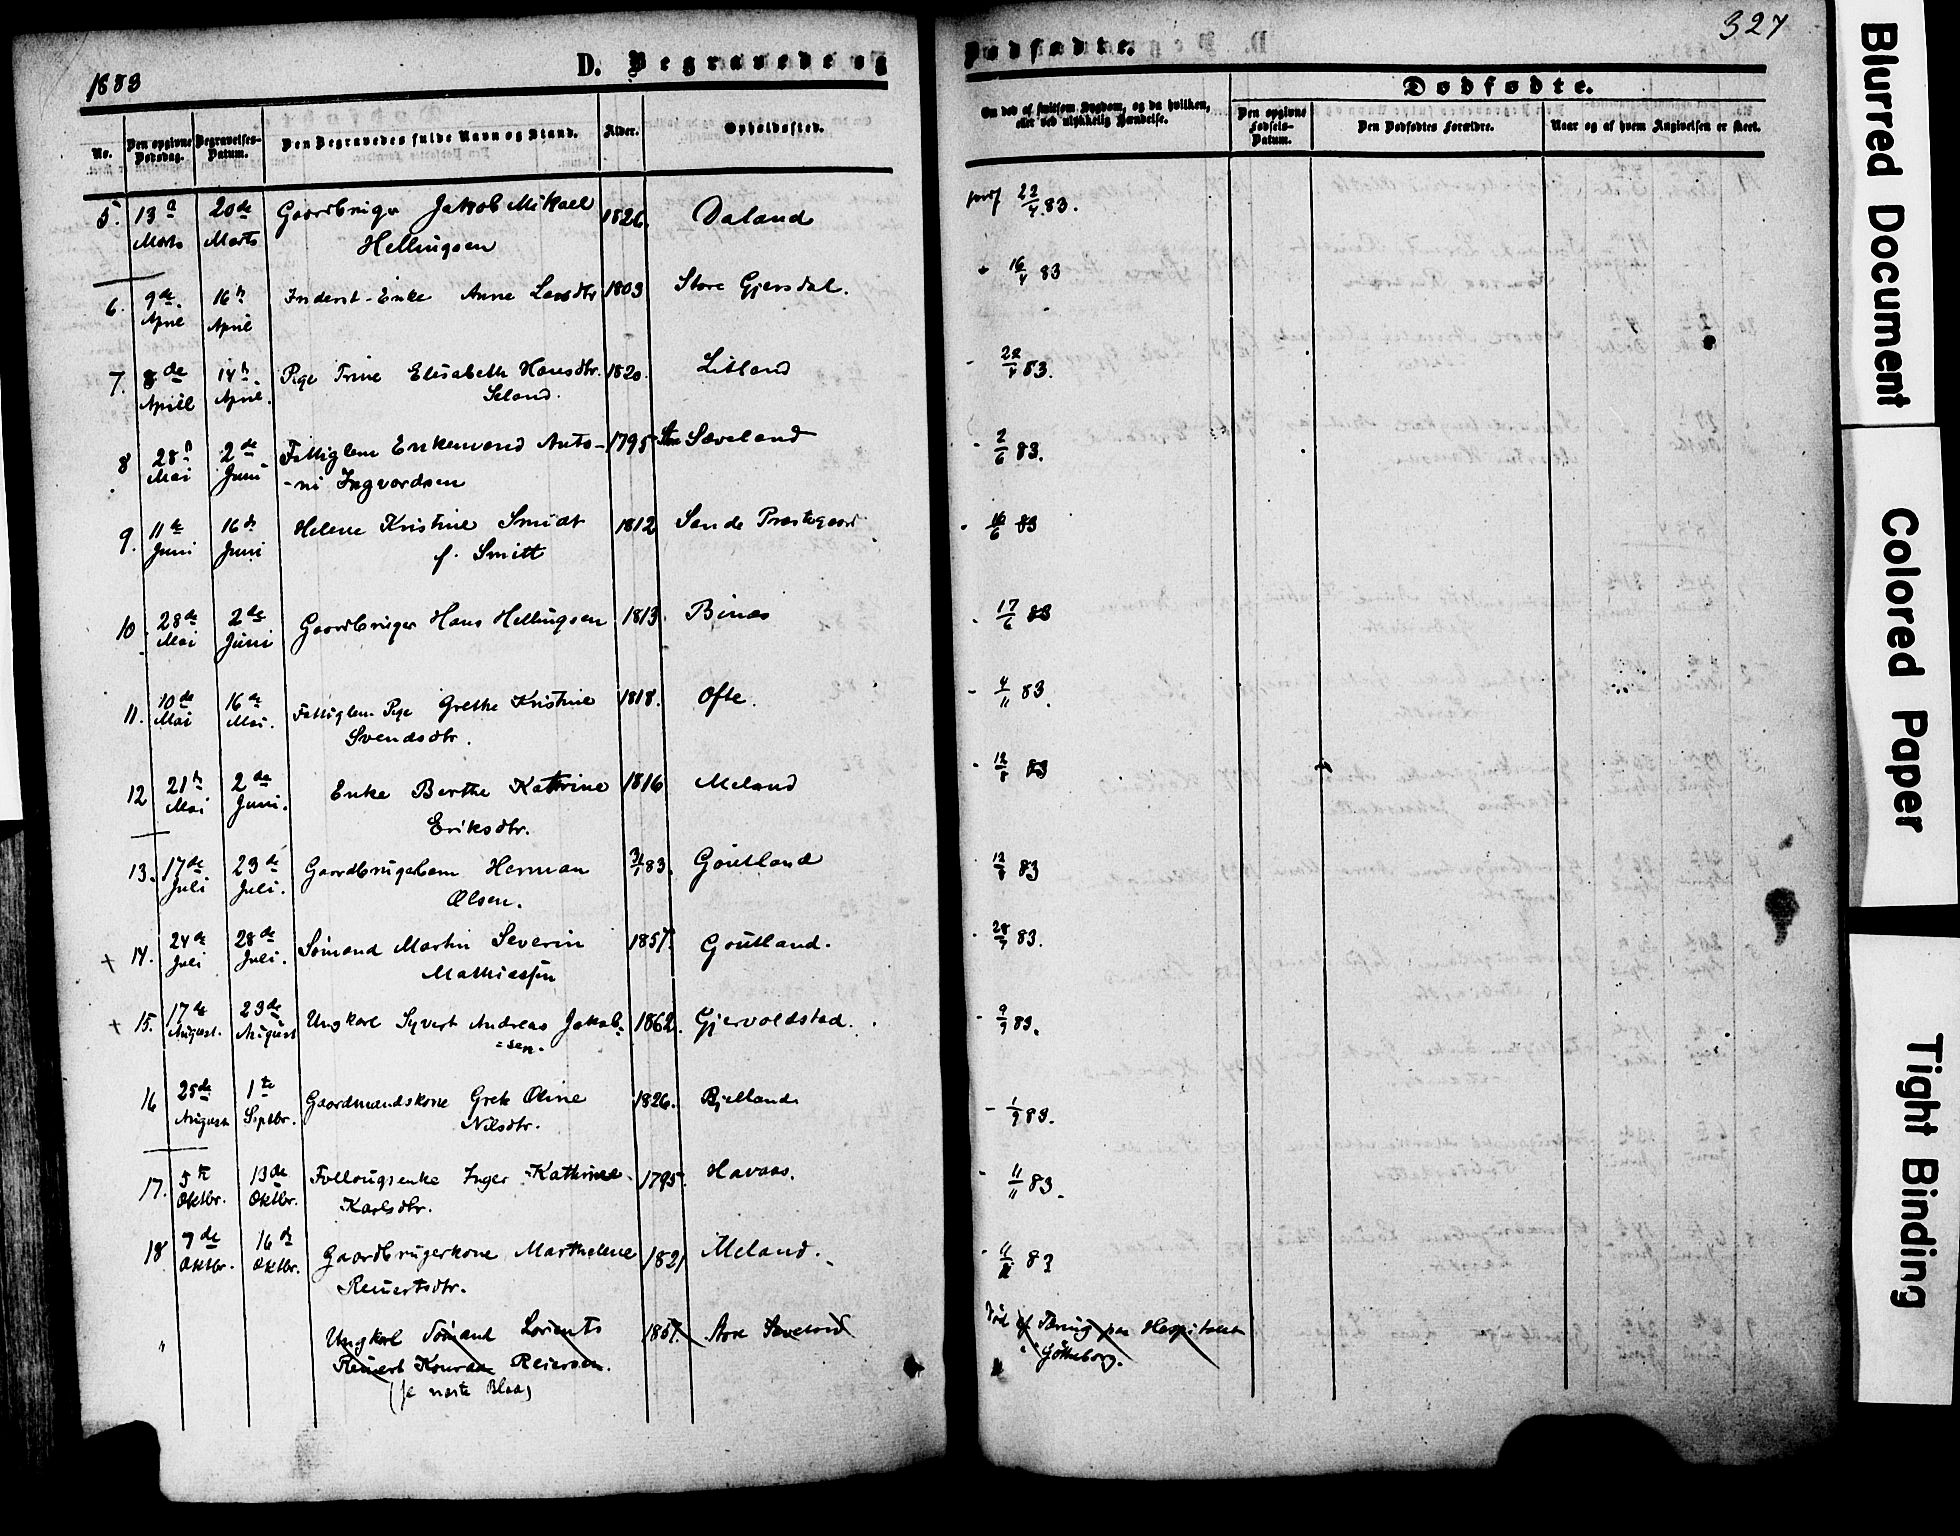 327
1883
D. Begravede og
Dødfødte.
No.
Den opgivne Dødsdag.
Begravelses-Datum.
Den Begravedes fulde Navn og Stand.
Alder.
Opholdssted.
Om død af smitsom Sygdom, og da hvilken,
eller ved ulykkelig Hændelse.
Dødfødte.
Den opgivne Fødsels-Datum.
Den Dødfødtes Forældre.
Naar og af hvem Angivelsen er skeet.
5. 13de Marts 20de Marts Gaardbruger Jakob Mikael 1826. Daland 22/4 83.
Hellingsen
6. 9de April 16de April Inderst-Enke Anne Larsdtr 1803 Store Gjersdal. 16/4 83
7. 8de April 14de April. Pige Trine Elisabeth Hansdtr. 1820. Litland 22/4 83.
Seland.
8 28de Mai 2de Juni Fattiglem Enkemand Anto- 1795 Store Sæveland - 2/6 83.
-ni Ingvordsen
9. 11te Juni 16de Juni Helene Kristine Smidt 1812 Sande Præstegaard 16/6 83
f. Smitt
10. 28de Mai 2de Juni Gaardbruger Hans Hellingsen 1813. Binæs 17/6 83
11. 10de Mai 16de Mai. Fattiglem Pige Grethe Kristine 1818. Ofte. - 4/11 83.
Svendsdtr.
12 21de Mai 2de Juni. Enke Berthe Kathrine 1816 Meland - 12/8 83
Eriksdtr.
13. 17de Juli 23de Juli. Gaardbrugerbarn Herman 83. Goutland 12/8 83
Olsen.
+ 14. 24de Juli 28de Juli. Sømand Martin Severin 1857. Goutland. 83.
Mathiassen
+ 15. 17de August. 23de August Ungkarl Syvert Andreas Jakob- 1862. Gjervoldstad. - 9/9 83.
=sen.
16 25de August 1te Septbr. Gaardmandskone Grete Oline 1826. Bjelland - 1/9 83.
Nilsdtr.
17. 5te Oktbr. 13de Oktbr. Follougsenke Inger Kathrine 1795. Havaas. - 11/11 83.
Karlsdtr.
18 7de Oktbr. 16de Oktbr. Gaardbrugerkone Marthelene 1821 Meland. - 83
Reiertsdtr.
" Ungkarl Sømand Lorents 1857. Sæveland Død af Tæring paa Hospitalet
Reiert Konrad Reiersen. i Gøtheborg.
(se næste Blad)
Blurred Document
Colored Paper
Tight Binding